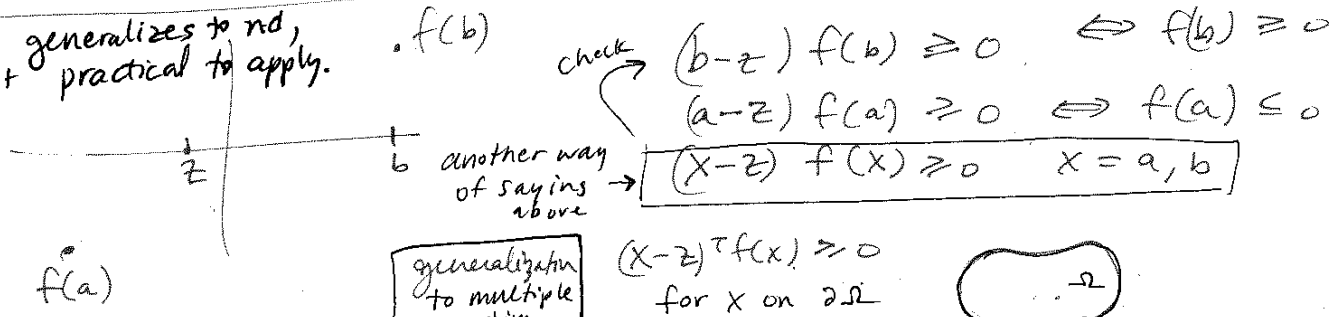 generalizes to nd,
+ practical to apply.
. f(b)
z
b
f(a)
check
(b-z) f(b) ≥ 0 ⇔ f(b) ≥ 0
(a-z) f(a) ≥ 0 ⇔ f(a) ≤ 0
another way
of saying →
above
(x-z) f(x) ≥ 0 x = a, b
generalization
to multiple
(x-z)ᵀ f(x) ≥ 0
for x on ∂Ω
Ω